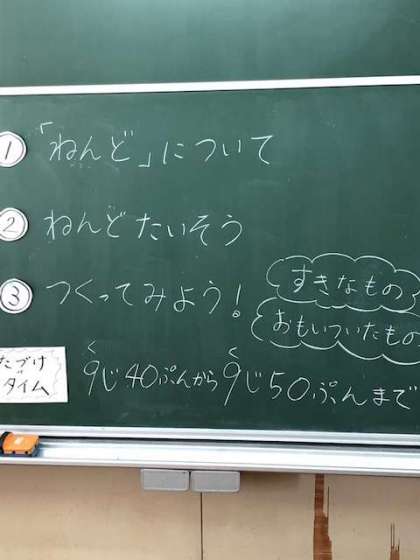 ①「ねんど」について
②ねんどたいそう
③つくってみよう!
すきなもの
おもいついたもの
たづけ
タイム
く く
9じ40ぷんから9じ50ぷんまで